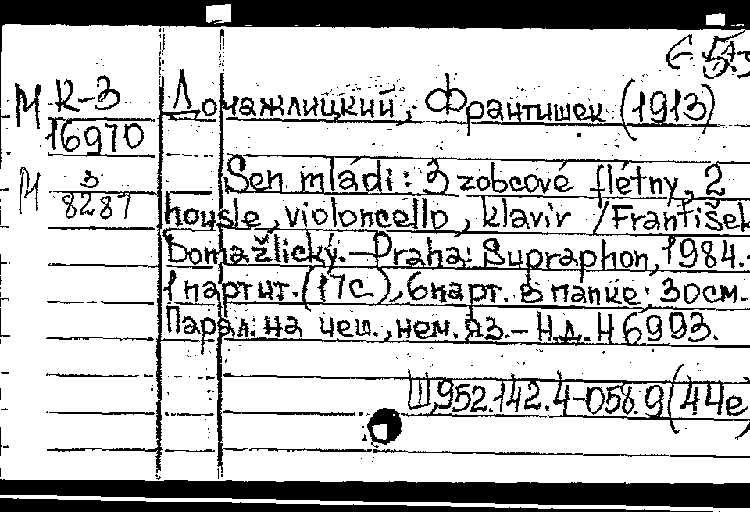 М К-3
16970
Домажлицкий, Франтишек (1913)
М 3
8287
Sen mládí: 3 zobcové flétny, 2
housle, violoncello, klavír /František
Domažlický.–Praha: Supraphon, 1984.–
1 партит. (17с), 6 парт. в папке; 30см.–
Парал. на чеш., нем. яз.–Н.д. H 6993.
Ш952.142.4-058.9(44е)